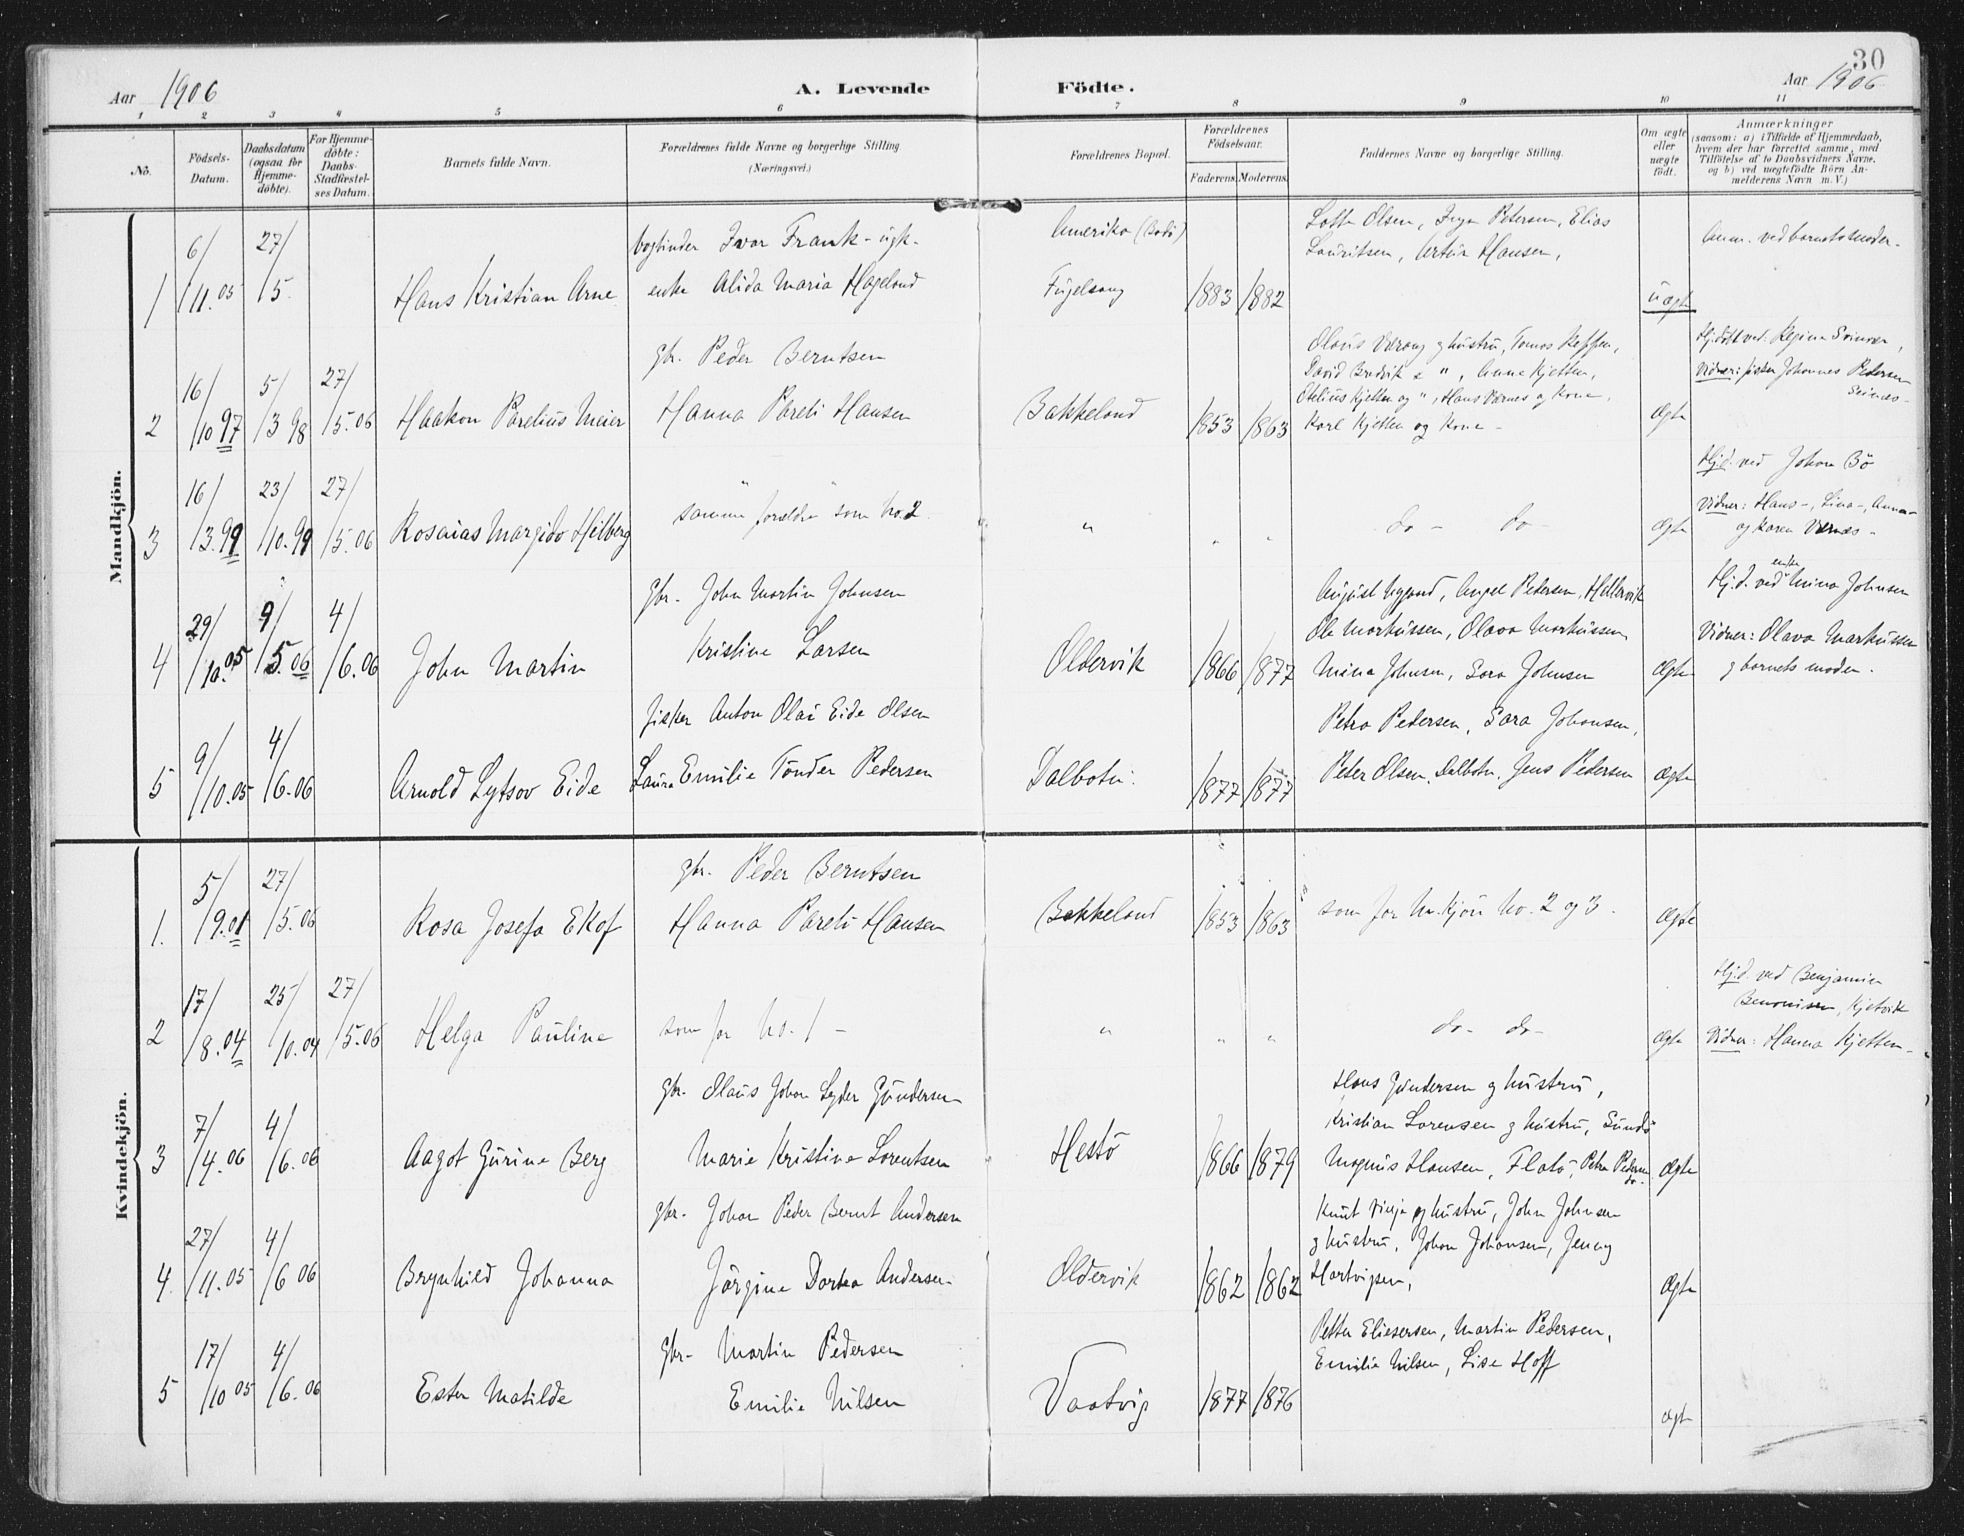 30
Aar 1906
A. Levende Födte.
Aar 1906
1 2 3 4 5 6 7 8 9 10 11
No.
Födsels-Datum.
Daabsdatum (ogsaa för Hjemme-döbte).
For Hjemme-döbte: Daabs-Stadfæstel-ses Datum.
Barnets fulde Navn.
Forældrenes fulde Navne og borgerlige Stilling. (Næringsvei.)
Forældrenes Bopæl.
Forældrenes Födselsaar.
Faderens Moderens
Faddernes Navne og borgerlige Stilling.
Om ægte eller uægte födt.
Anmærkninger (saasom: a) i Tilfælde af Hjemmedaab, hvem der har forrettet samme, med Tilföielse af to Daabsvidners Navne, og b) ved uægtefödte Börn An-melderens Navn m. V.)
Mandkjön.
1 6/11.05 27/5. Hans Kristian Arne
bogbinder Ivar Frank - ugk.
enke Alida Maria Hagelund
Amerika (Bodö)
Fuglesang 1883 1882
Lotte Olsen, Inga Petersen, Elias
Lauritsen, Artur Hansen,
uægte
Anm. ved barnets moder -
2 16/10 97 5/3 98 27/5.06 Haakon Parelius Meier
gbr. Peder Berntsen
Hanna Pareli Hansen
Bakkeland 1853 1863
Olaus Værang og hustru, Tomas
David " , Anna Kjetten,
Kjetten og " , Hans Værnes og Kone,
Karl Kjetten og Kone -
Ægte
Hj.döbt ved. Regine
Vidner: fisker Johannes Pedersen
3 16/3.99 23/10.99 27/5.06 Rosaias Margido Hilberg
samme forældre som No. 2
" " "
do - do -
Ægte
Hj.d. ved Johan Bö
Vidner: Hans -, Lina -, Anna -
og Karen Værnes -
4 29/10.05 9/5.06 4/6.06 John Martin
Gbr. John Martin Johnsen
Kristine Larsen
Oldervik 1866 1877
August Nygaard, Angel Pedersen, Hellervik
Ole Markussen, Olava Markussen
Mina Johnsen, Sara Johnsen
Ægte
Hj.d. ved enke Mina Johnsen
Vidner: Olava Markussen
og barnets moder.
5 9/10.05 4/6.06 Arnold Lytsov Eide
fisker Anton Olai Eide Olsen
Laura Emilie Tönder Pedersen
Dalbotn. 1877 1877
Petra Pedersen, Sara Johansen,
Peter Olsen, Dalbotn, Jens Pedersen
Ægte
Kvindekjön.
1. 5/9.01 27/5.06 Rosa Josefa Ekof
gbr. Peder Berntsen
Hanna Pareli Hansen
Bakkeland 1853 1863
som for M.kjön No. 2 og 3.
Ægte
2 17/8.04 25/10.04 27/5.06 Helga Pauline
som for No. 1 -
" " "
do - do -
Ægte
Hj.d. ved Benjamin
Benonisen, Kjetvik
Vidner: Hanna Kjetten -
3 7/4.06 4/6.06 Aagot Gurine Berg
gbr. Olaus Johan Lyder Gundersen
Marie Kristine Lorentsen
Hestö 1866 1879
Hans Gundersen og hustru,
Kristian Lorensen og hustru, Sundö
Magnus Hansen, Flatö, Petra Pedersen do.
Ægte
4. 27/11.05 4/6 06 Brynhild Johanna
gbr. Johan Peder Bernt Andersen
Jörgine Dorka Andersen
Oldervik 1862 1862
Knut Vinje og hustru, John Johnsen
og hustru, Johan Johansen, Jenny
Hartvigsen,
Ægte
5 17/10 05 4/6.06 Ester Matilde
Gbr - Martin Pedersen
Emilie Nilsen
Vaatvig 1877 1876
Petter Eliesersen, Martin Pedersen,
Emilie Nilsen, Lise Hoff
Ægte